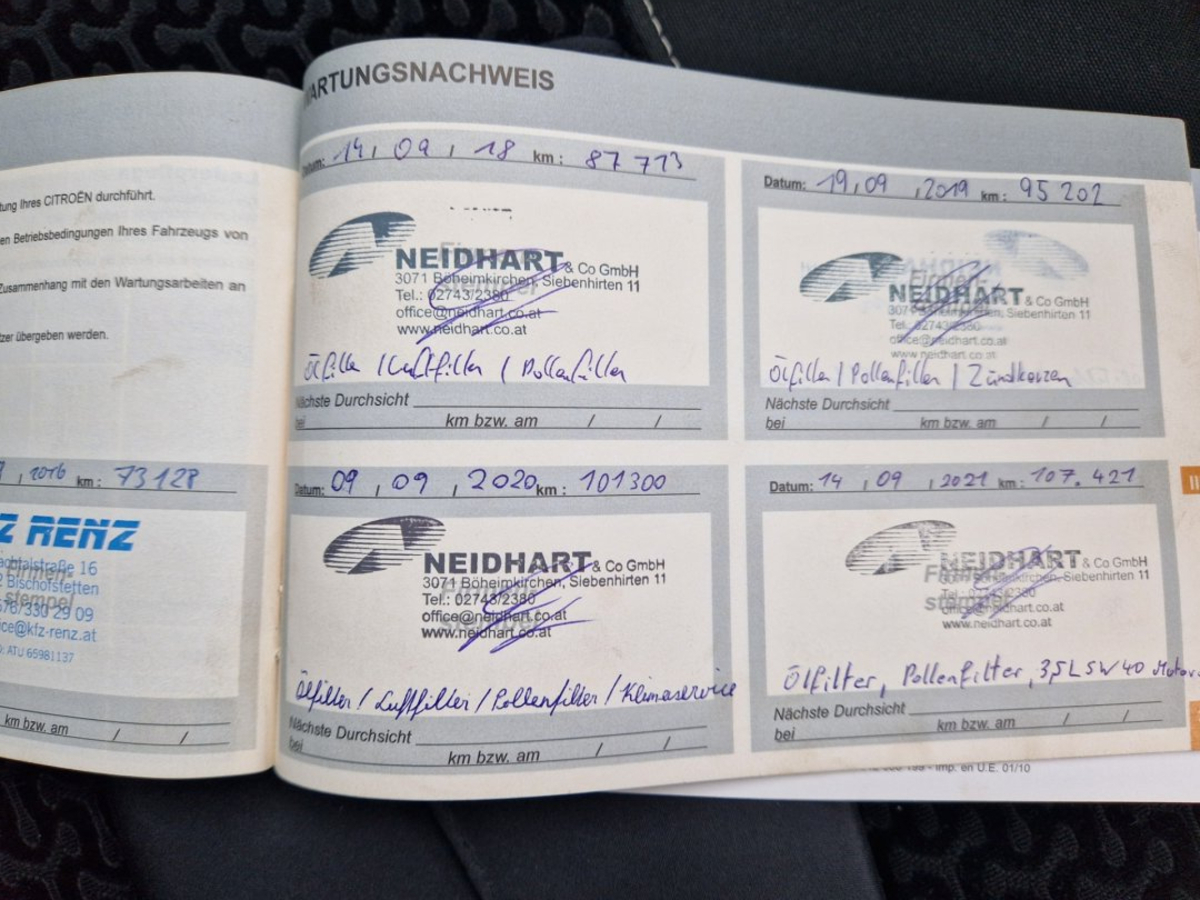 tung Ihres CITROËN durchführt.
en Betriebsbedingungen Ihres Fahrzeugs von
Zusammenhang mit den Wartungsarbeiten an
tzer übergeben werden.
2016 km: 73128
Z RENZ
achtalstraße 16
2 Bischofstetten
676/330 29 09
ice@kfz-renz.at
D: ATU 65981137
Firmen-
stempel
km bzw. am / /
WARTUNGSNACHWEIS
Datum: 14, 09, 18 km: 87 713
NEIDHART & Co GmbH
3071 Böheimkirchen, Siebenhirten 11
Tel.: 02743/2380
office@neidhart.co.at
www.neidhart.co.at
Ölfilter / Luftfilter / Pollenfilter
Nächste Durchsicht
bei km bzw. am / /
Datum: 19, 09, 2019 km: 95 202
NEIDHART & Co GmbH
3071 Böheimkirchen, Siebenhirten 11
Tel.: 02743/2380
office@neidhart.co.at
www.neidhart.co.at
Ölfilter / Pollenfilter / Zündkerzen
Nächste Durchsicht
bei km bzw. am / /
Datum: 09, 09, 2020 km: 101300
NEIDHART & Co GmbH
3071 Böheimkirchen, Siebenhirten 11
Tel.: 02743/2380
office@neidhart.co.at
www.neidhart.co.at
Ölfilter / Luftfilter / Pollenfilter / Klimaservice
Nächste Durchsicht
bei km bzw. am / /
Datum: 14, 09, 2021 km: 107.421
NEIDHART & Co GmbH
3071 Böheimkirchen, Siebenhirten 11
Tel.: 02743/2380
office@neidhart.co.at
www.neidhart.co.at
Ölfilter, Pollenfilter, 3,5L 5W40 Motor
Nächste Durchsicht
bei km bzw. am / /
- Imp. en U.E. 01/10